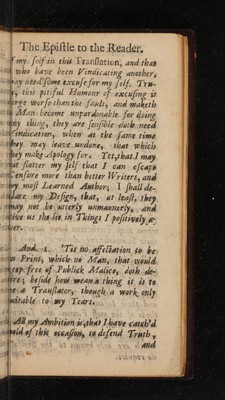 The Epistle to the Reader.
my self in this Translation, and that
who have been Vindicating another,
may need some excuse for my self. Tru-
ly, this pitiful Humour of excusing is
large worse than the fault, and maketh
Man become unpardonable for doing
any thing, they are sensible doth need
Vindication, when at the same time
they may leave undone, that which
they make Apology for. Yet, that I may
not flatter my self that I can escape
Censure more than better Writers, and
my most Learned Author; I shall de-
clare my Design, that, at least, they
may not be utterly unmannerly, and
give us the lie in Things I positively a-
ver.
And. 1. 'Tis no affectation to be
in Print, which no Man, that would
keep free of Publick Malice, doth de-
sire; beside how mean a thing is it to
be a Translator, though a work only
suitable to my Years.
All my Ambition is, that I have catch'd
hold of this occasion, to defend Truth,
and